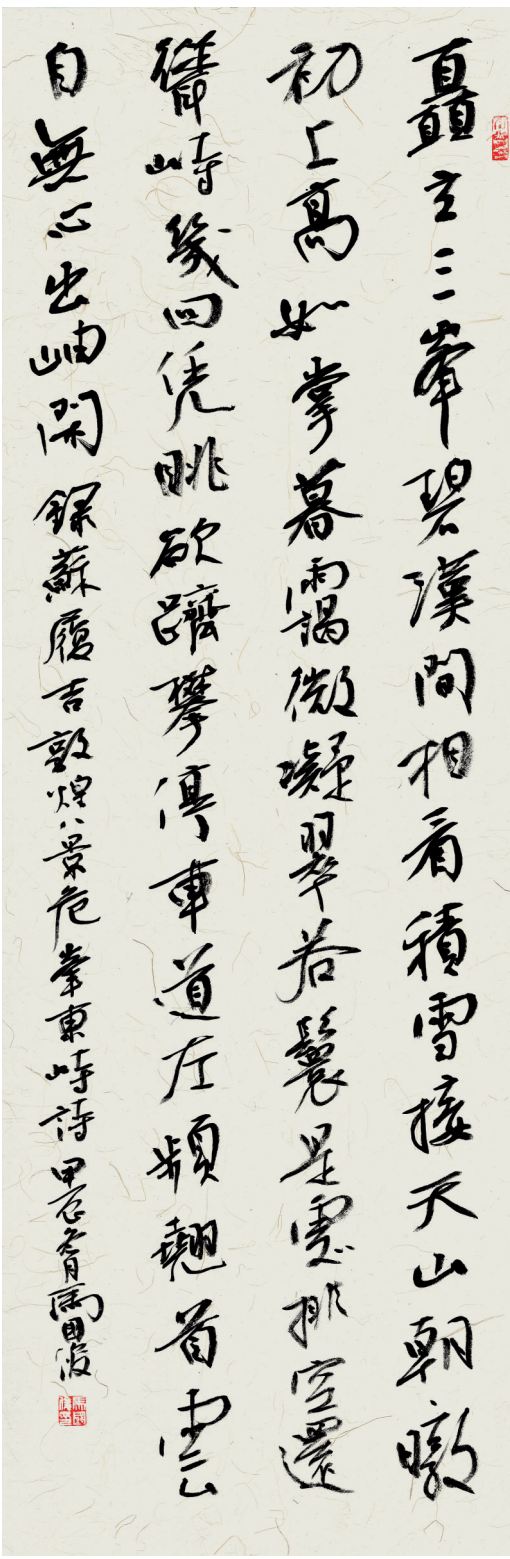 矗立三峯碧漢間相看積雪接天山朝暾
初上高如掌暮靄微凝翠若鬟是處排空還
聳峙幾回凭眺欲躋攀停車道左頻翹首雲
自無心出岫閑 錄蘇履吉敦煌八景危峯東峙詩 甲辰馬國俊